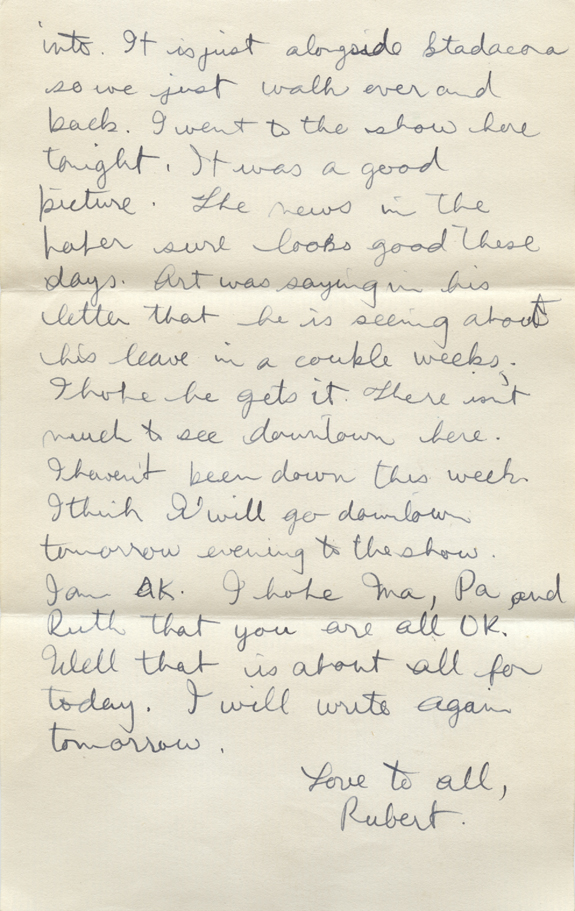 into. It is just alongside Stadacona
so we just walk over and
back. I went to the show here
tonight. It was a good
picture. The news in the
paper sure looks good these
days. Art was saying in his
letter that he is seeing about
his leave in a couple weeks.
I hope he gets it. There isn't
much to see downtown here.
I haven't been down this week.
I think I will go downtown
tomorrow evening to the show.
I am OK. I hope Ma, Pa and
Ruth that you are all OK.
Well that is about all for
today. I will write again
tomorrow.
Love to all,
Rubert.